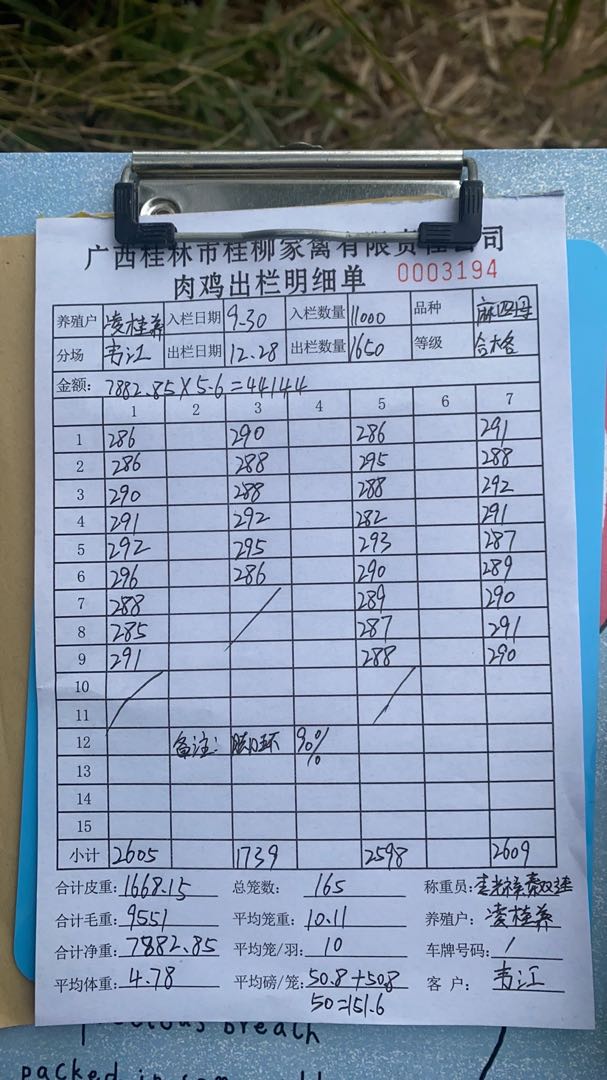 广西桂林市桂柳家禽有限责任公司
肉鸡出栏明细单 0003194
养殖户 凌桂养 入栏日期 9.30 入栏数量 11000 品种 麻四母
分场 韦江 出栏日期 12.28 出栏数量 1650 等级 合大名
金额: 7882.85×5.6=44144
1 2 3 4 5 6 7
1 286 290 286 291
2 286 288 295 288
3 290 288 288 292
4 291 292 282 291
5 292 295 293 287
6 296 286 290 289
7 288 289 290
8 285 287 291
9 291 288 290
10
11
12 备注: 环 90%
13
14
15
小计 2605 1739 2598 2609
合计皮重: 1668.15 总笼数: 165 称重员:
合计毛重: 9551 平均笼重: 10.11 养殖户: 凌桂养
合计净重: 7882.85 平均笼/羽: 10 车牌号码: /
平均体重: 4.78 平均磅/笼: 50.8+50.8 客户: 韦江
50=151.6
precious breath
packed in